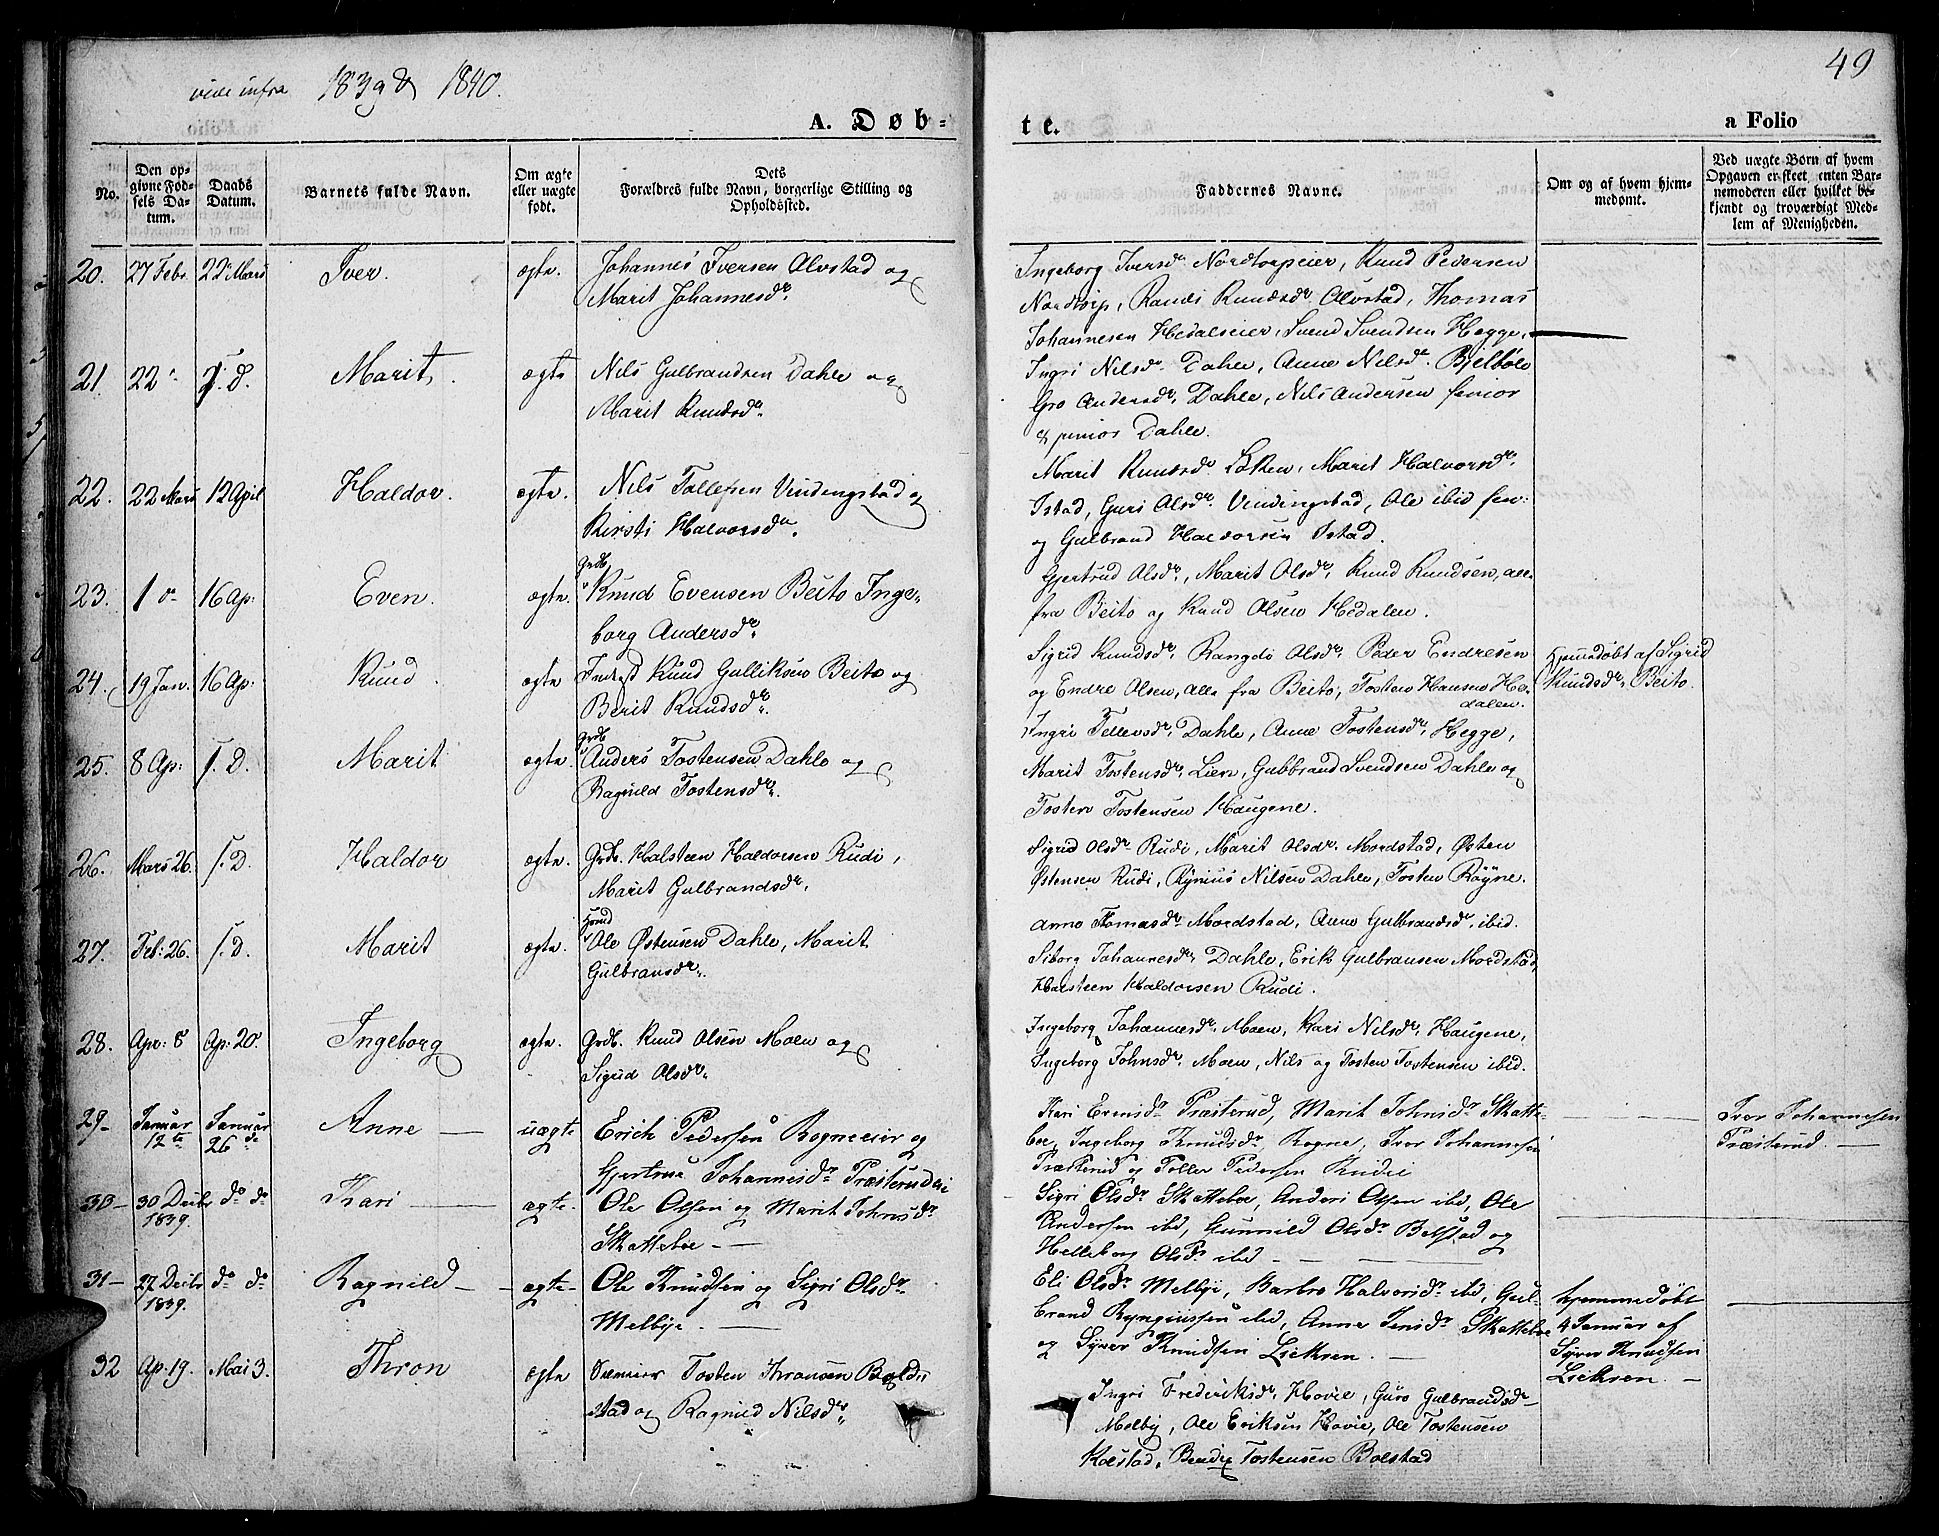 vide infra 1839 & 1840.
49
A. Døb-
te.
a Folio
No.
Den op-
givne Fød-
sels Da-
tum.
Daabs
Datum.
Barnets fulde Navn.
Om ægte
eller uægte
født.
Dets
Forældres fulde Navn, borgerlige Stilling og
Opholdssted.
Faddernes Navne.
Om og af hvem hjem-
medømt.
Ved uægte Børn af hvem
Opgaven er skeet, enten Bar-
nemoderen eller hvilket be-
kjendt og troværdigt Med-
lem af Menigheden.
20. 27 Febr. 22 Mars Iver. ægte. Johannes Iversen Alvstad og
Marit Johannesdr.
Ingeborg Iversdr Nordtorpeier, Knud Pedersen
Nordtorp, Randi Knudsdr Alvstad, Thomas
Johannesen Hedalseier, Svend Svendsen Hegge.
21. 22 s. D. Marit. ægte Nils Gulbrandsen Dahle og
Marit Knudsdr.
Ingri Nilsdr. Dahle, Anne Nilsdr. Bjelbøle
Gro Andersdr, Dahle, Nils Andersen senior
& junior Dahle.
22. 22 Mars 12 April Haldor. ægte. Nils Tollefsen Vindingstad og
Kirsti Halvorsdr.
Marit Knudsdr. Løken, Marit Halvorsdr.
Istad, Guri Olsdr. Vindingstad, Ole ibid sen:
og Gulbrand Haldorsen Istad.
23. 1 16 Ap: Even. ægte. Grdb.
Knud Evensen Beito Inge-
borg Andersdr.
Gjertrud Olsdr, Marit Olsdr, Knud Knudsen, alle
fra Beito og Knud Olsen Hedalen.
24. 19 Jan. 16 Ap: Knud. ægte Inderst Knud Gulliksen Beito og
Berit Knudsdr.
Sigrid Knudsdr, Rangdi Olsdr, Peder Endresen
og Endre Olsen, alle fra Beito, Tosten Hansen He-
dalen.
Hjemdøbt af Sigrid
Knudsdr. Beito.
25. 8 Ap: s. D. Marit ægte. Grdb
Anders Tostensen Dahle og
Ragnild Tostensdr.
Ingri Tollevsdr, Dahle, Anne Tostensdr, Hegge,
Marit Tostensdr, Lien, Gulbrand Svendsen Dahle og
Tosten Tostensen Haugene.
26. Mars 26. s. D. Haldor ægte. Grdb. Halsteen Haldorsen Rudi,
Marit Gulbrandsdr.
Sigrid Olsdr Rudi, Marit Olsdr. Mordstad, Østen
Østensen Rudi, Rynius Nilsen Dahle, Tosten Røyne.
27. Feb: 26. s. D. Marit ægte. Huusd
Ole Østensen Dahle, Marit
Gulbransdr.
Anne Thomasdr Mordstad, Anne Gulbrandsdr, ibid.
Siborg Johannesdr, Dahle, Erik Gulbransen Mordstad,
Halsteen Haldorsen Rudi.
28. Apr: 8 Ap: 20. Ingeborg ægte. Grdb. Knud Olsen Moen og
Sigrid Olsdr.
Ingeborg Johannesdr, Moen, Kari Nilsdr, Haugene,
Ingeborg Johnsdr, Moen, Nils og Tosten Tostensen ibid.
29- Januar
12te Januar
26de Anne uægte Erich Pedersen Rogneeier og
Gjertrud Johannisdr Præsterudeie
Kari Ermisdr Præsterud, Marit Johnsdr Skatte-
boe, Ingeborg Knudsdr, Rogne, Iver Johannesen
Præsterud og Tollev Pedersen
Iver Johannesen
Præsterud
30- 30 Decbr
1839. do do Kari ægte- Ole Olsen og Marit Johnsdr
Skatteboe
Sigri Olsdr Skatteboe, Anders Olsen ibd, Ole
Andersen ibd, Gunnild Olsdr Bolstad og
Helleborg Olsdr ibid
31- 27 Decbr
1839. do do Ragnild ægte- Ole Knudsen og Sigri Olsdr
Melbye.
Eli Olsdr Melbye, Barbro Halvorsdr ibd, Gul-
brand Ryngiussen ibid, Anne Jensdr Skatteboe
og Syver Knudsen Liekren.
hjemmedøbt
4 Januar af
Syver Knudsen
Liekren.
32 Ap. 19. Mai 3. Thron ægte Tosten Thronsen Bold-
stad og Ragnild Nilsdr.
Ingri Frederiksdr, Hovie, Guro Gulbrandsdr
Melby, Ole Eriksen Hovie, Ole Tostensen
Kolstad, Bendix Tostensen Bolstad